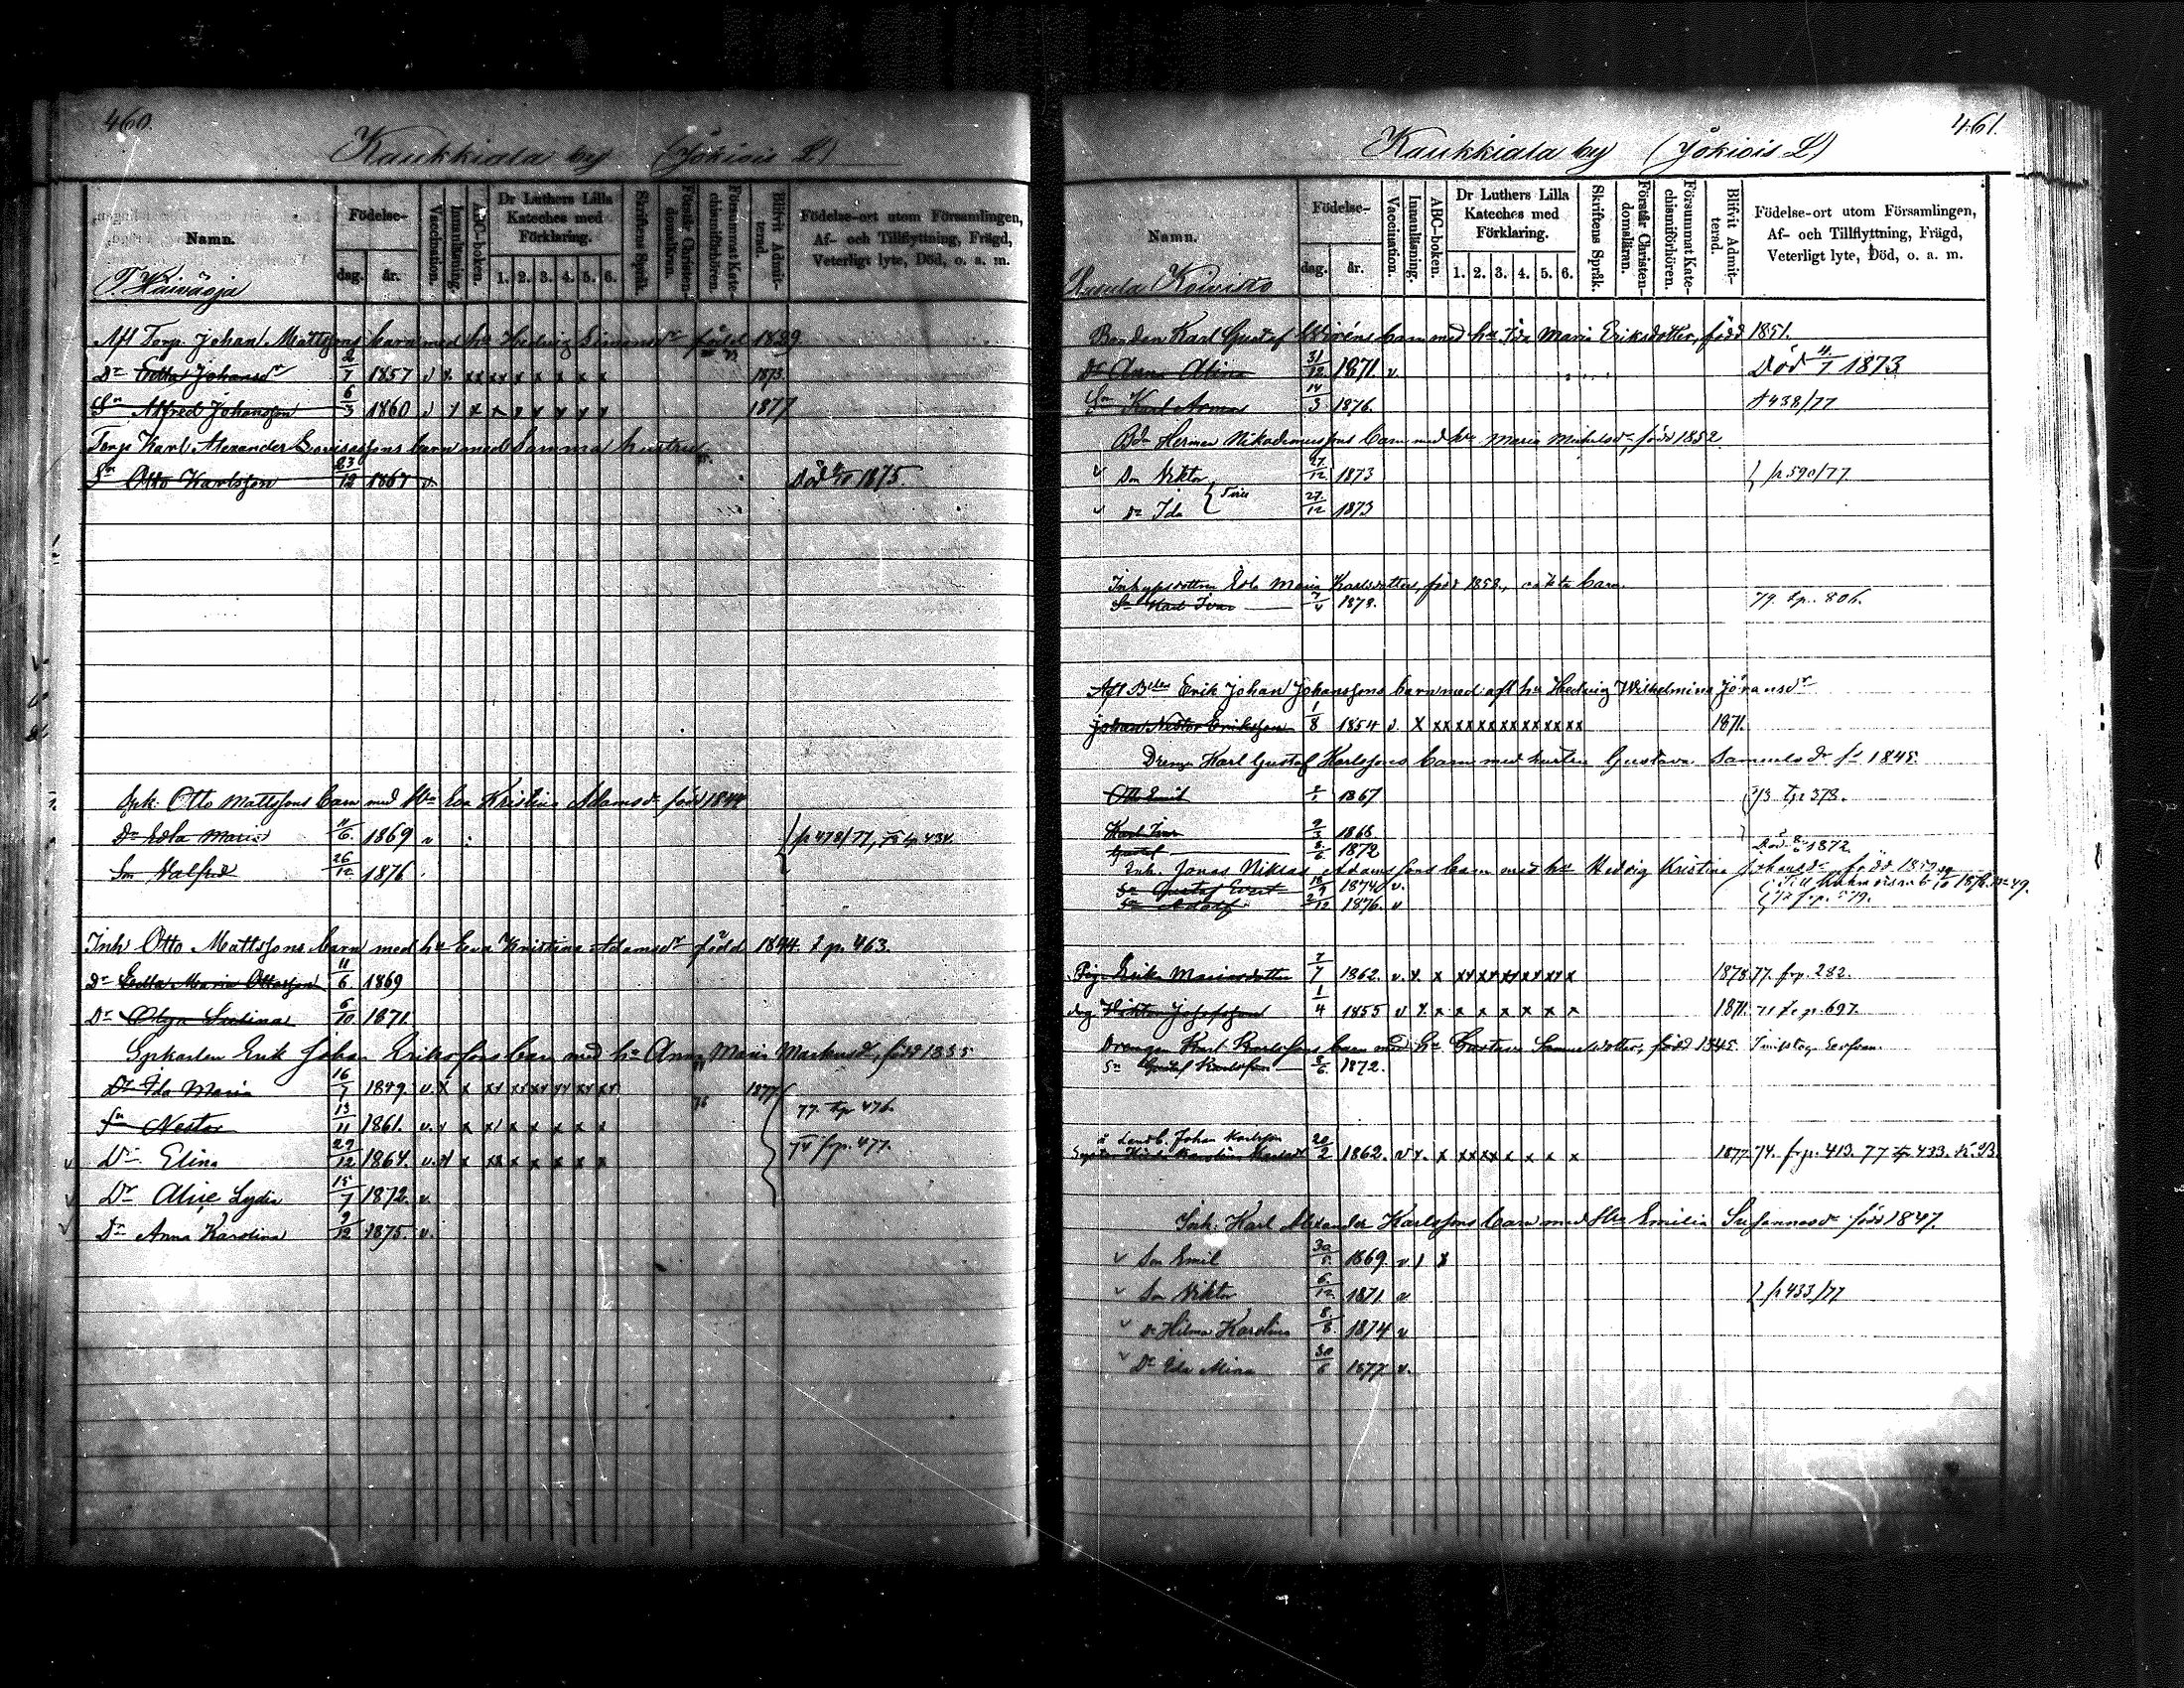 460.
Kaukkiala by (Jokiois L)
Namn.
Födelse-
dag.
år.
Vaccination.
Innanläsning.
ABC-boken.
Dr Luthers Lilla Kateches med Förklaring.
1. 2. 3. 4. 5. 6.
Skriftens Språk.
Förstår Christendomsläran.
Försummat Katechismiförhören.
Blifvit Admitterad.
Födelse-ort utom Församlingen,
Af- och Tillflyttning, Frägd,
Veterligt lyte, Död, o. a. m.
Afl Torp. Johan Mattssons barn med hu Hedvig Simonsdr född 1829
Dr Edla Johansdr 2/7 1857 v x xx xx x x x x x 1873.
Sn Alfred Johansson 6/3 1860 v x x x x x x x x 1877
Torp Karl Alexander barn med samma hustru
Sn Otto Karlsson 23/12 1867 v. Död 1875.
Otto Mattssons barn med Hu Eva Kristina Adamsdr född 1844
Dr Edla Maria 11/6 1869 v p 478/77,
Son Valfrid 26/12 1876
Inh Otto Mattssons barn med hu Eva Kristina Adamsdr född 1844. p. 463.
Dr Edla Maria Ottosson 11/6. 1869
Dr Olga 6/10 1871.
Erik Johan Erikssons barn med hu Anna Maria Markusdr, född 1835
Dr Ida Maria 16/7 1849. v. x x xx xx xx xx xx xx 1877
Sn Nestor 13/11 1861. v. x x x x x x x x 77. 476.
Dr Elina 29/12 1864. v. x x xx x x x x x 74 fr p. 477.
Dr Alice Lydia 15/7 1872. v.
Dr Anna Karolina 9/12 1875. v.
461.
Kaukkiala by (Jokiois L)
Namn.
Koivisto
Födelse-
dag.
år.
Vaccination.
Innanläsning.
ABC-boken.
Dr Luthers Lilla Kateches med Förklaring.
1. 2. 3. 4. 5. 6.
Skriftens Språk.
Förstår Christendomsläran.
Försummat Katechismiförhören.
Blifvit Admitterad.
Födelse-ort utom Församlingen,
Af- och Tillflyttning, Frägd,
Veterligt lyte, Död, o. a. m.
Bonden Karl Gustaf Wiréns barn med hu Ida Maria Eriksdotter, född 1851.
Dr Anna Alina 31/12 1871. v. Död 4/1 1873
Sn Karl Armas 14/3 1876. 438/77
Bdn Herman Nikodemussons barn med hu Maria Mikelsdr född 1852
Son Viktor 27/12 1873 } p 590/77.
Dr Ida 27/12 1873
Edla Maria Karlsdotters, född 1858., oäkta barn.
Sn Karl Ivar 7/4 1878. 79. p. 806.
Afl Bden Erik Johan Johanssons barn med afl hu Hedvig Wilhelmina Jöransdr
Johan Nestor Eriksson 1/8 1854 v x xx xx xx xx xx xx xx 1871.
Dreng Karl Gustaf Karlssons barn med hustru Gustava Samuelsdr fd 1845
Otto Emil 1867 73 378.
Karl Ivar 9/3 1868
Gustaf 8/6 1872 Död 1872.
Inh. Jonas Niklas Adamssons barn med hu Hedvig Kristina Johansdr född
Sn Gustaf Evert 18/9 1874 v.
Sn Adolf 2/12 1876. v
Pig. Erika Mariasdotter 7/7 1862. v. x. x xx xx xx xx xx x 1878. 77. fr p. 282.
drg Viktor Josefsson 1/4 1855 v x. x x x x x x x 1871. 71 fr p. 697.
Drengen Karl Karlssons barn med hu Gustava Samuelsdotter, född 1845
Sn Gustaf Karlsson 8/6. 1872.
Landb. Johan Karlsson
Karolina Karlsdr 20/2 1862. v x. x xx xx x x x x 1877. 74. fr p. 413. 77 433.
Inh. Karl Alexander Karlssons barn med Hu Emilia Susannasdr född 1847.
Son Emil 30/5. 1869. v x
Son Viktor 6/12 1871 v } p 433/77
Dr Hilma Karolina 8/8 1874 v
Dr Ida Mina 30/6 1877. v.